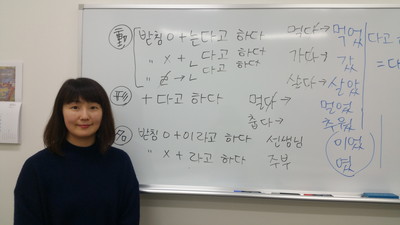 動 받침 O + 는다고 하다 먹다→ 먹었 다고
" X + ㄴ 다고 하다 가다→ 갔 = 다
ㄹ→ㄴ 다고 하다 살다→ 살았
形 + 다고 하다 멀다→ 멀었
춥다→ 추웠
名 받침 O + 이라고 하다 선생님 이었
" X + 라고 하다 주부 였